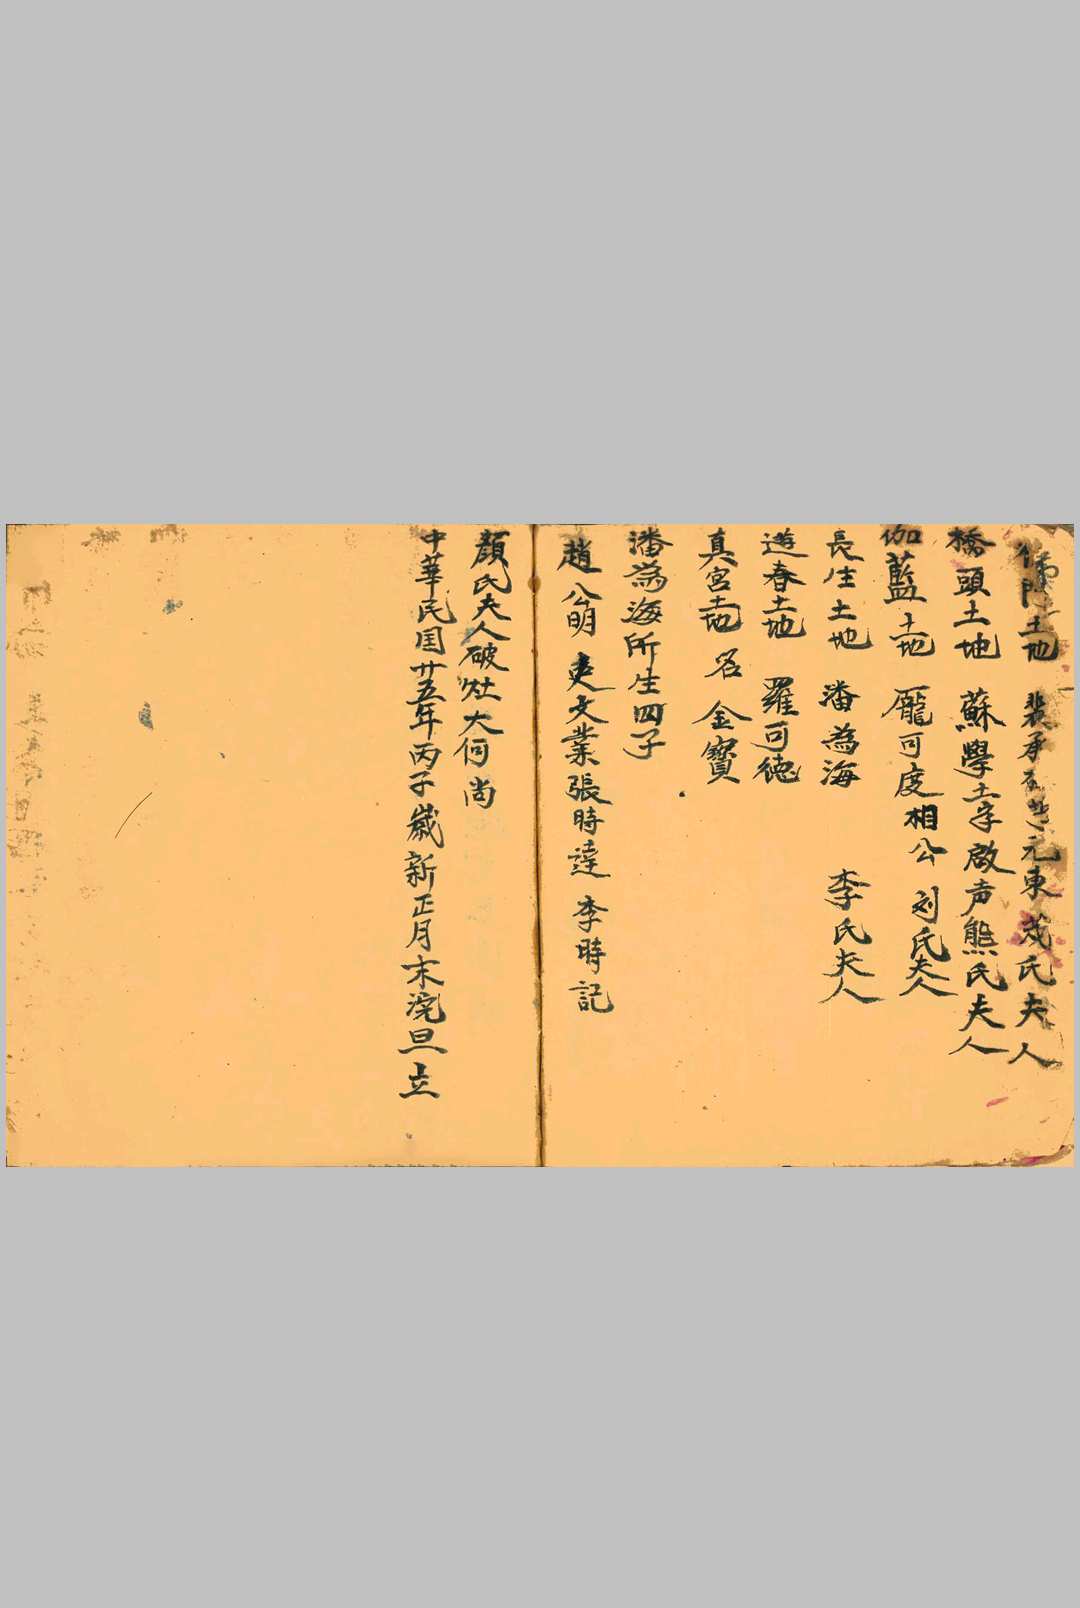 佛門土地 裴承 元東 氏夫人
橋頭土地 蘇學士字啟声熊氏夫人
伽藍土地 龐可度相公 刘氏夫人
長生土地 潘為海 李氏夫人
遊春土地 羅可德
真宮土地 名金寶
潘為海所生四子
趙公明 文業張時達 李時記
顏氏夫人破灶大何尚
中華民国廿五年丙子歲新正月末浣旦立